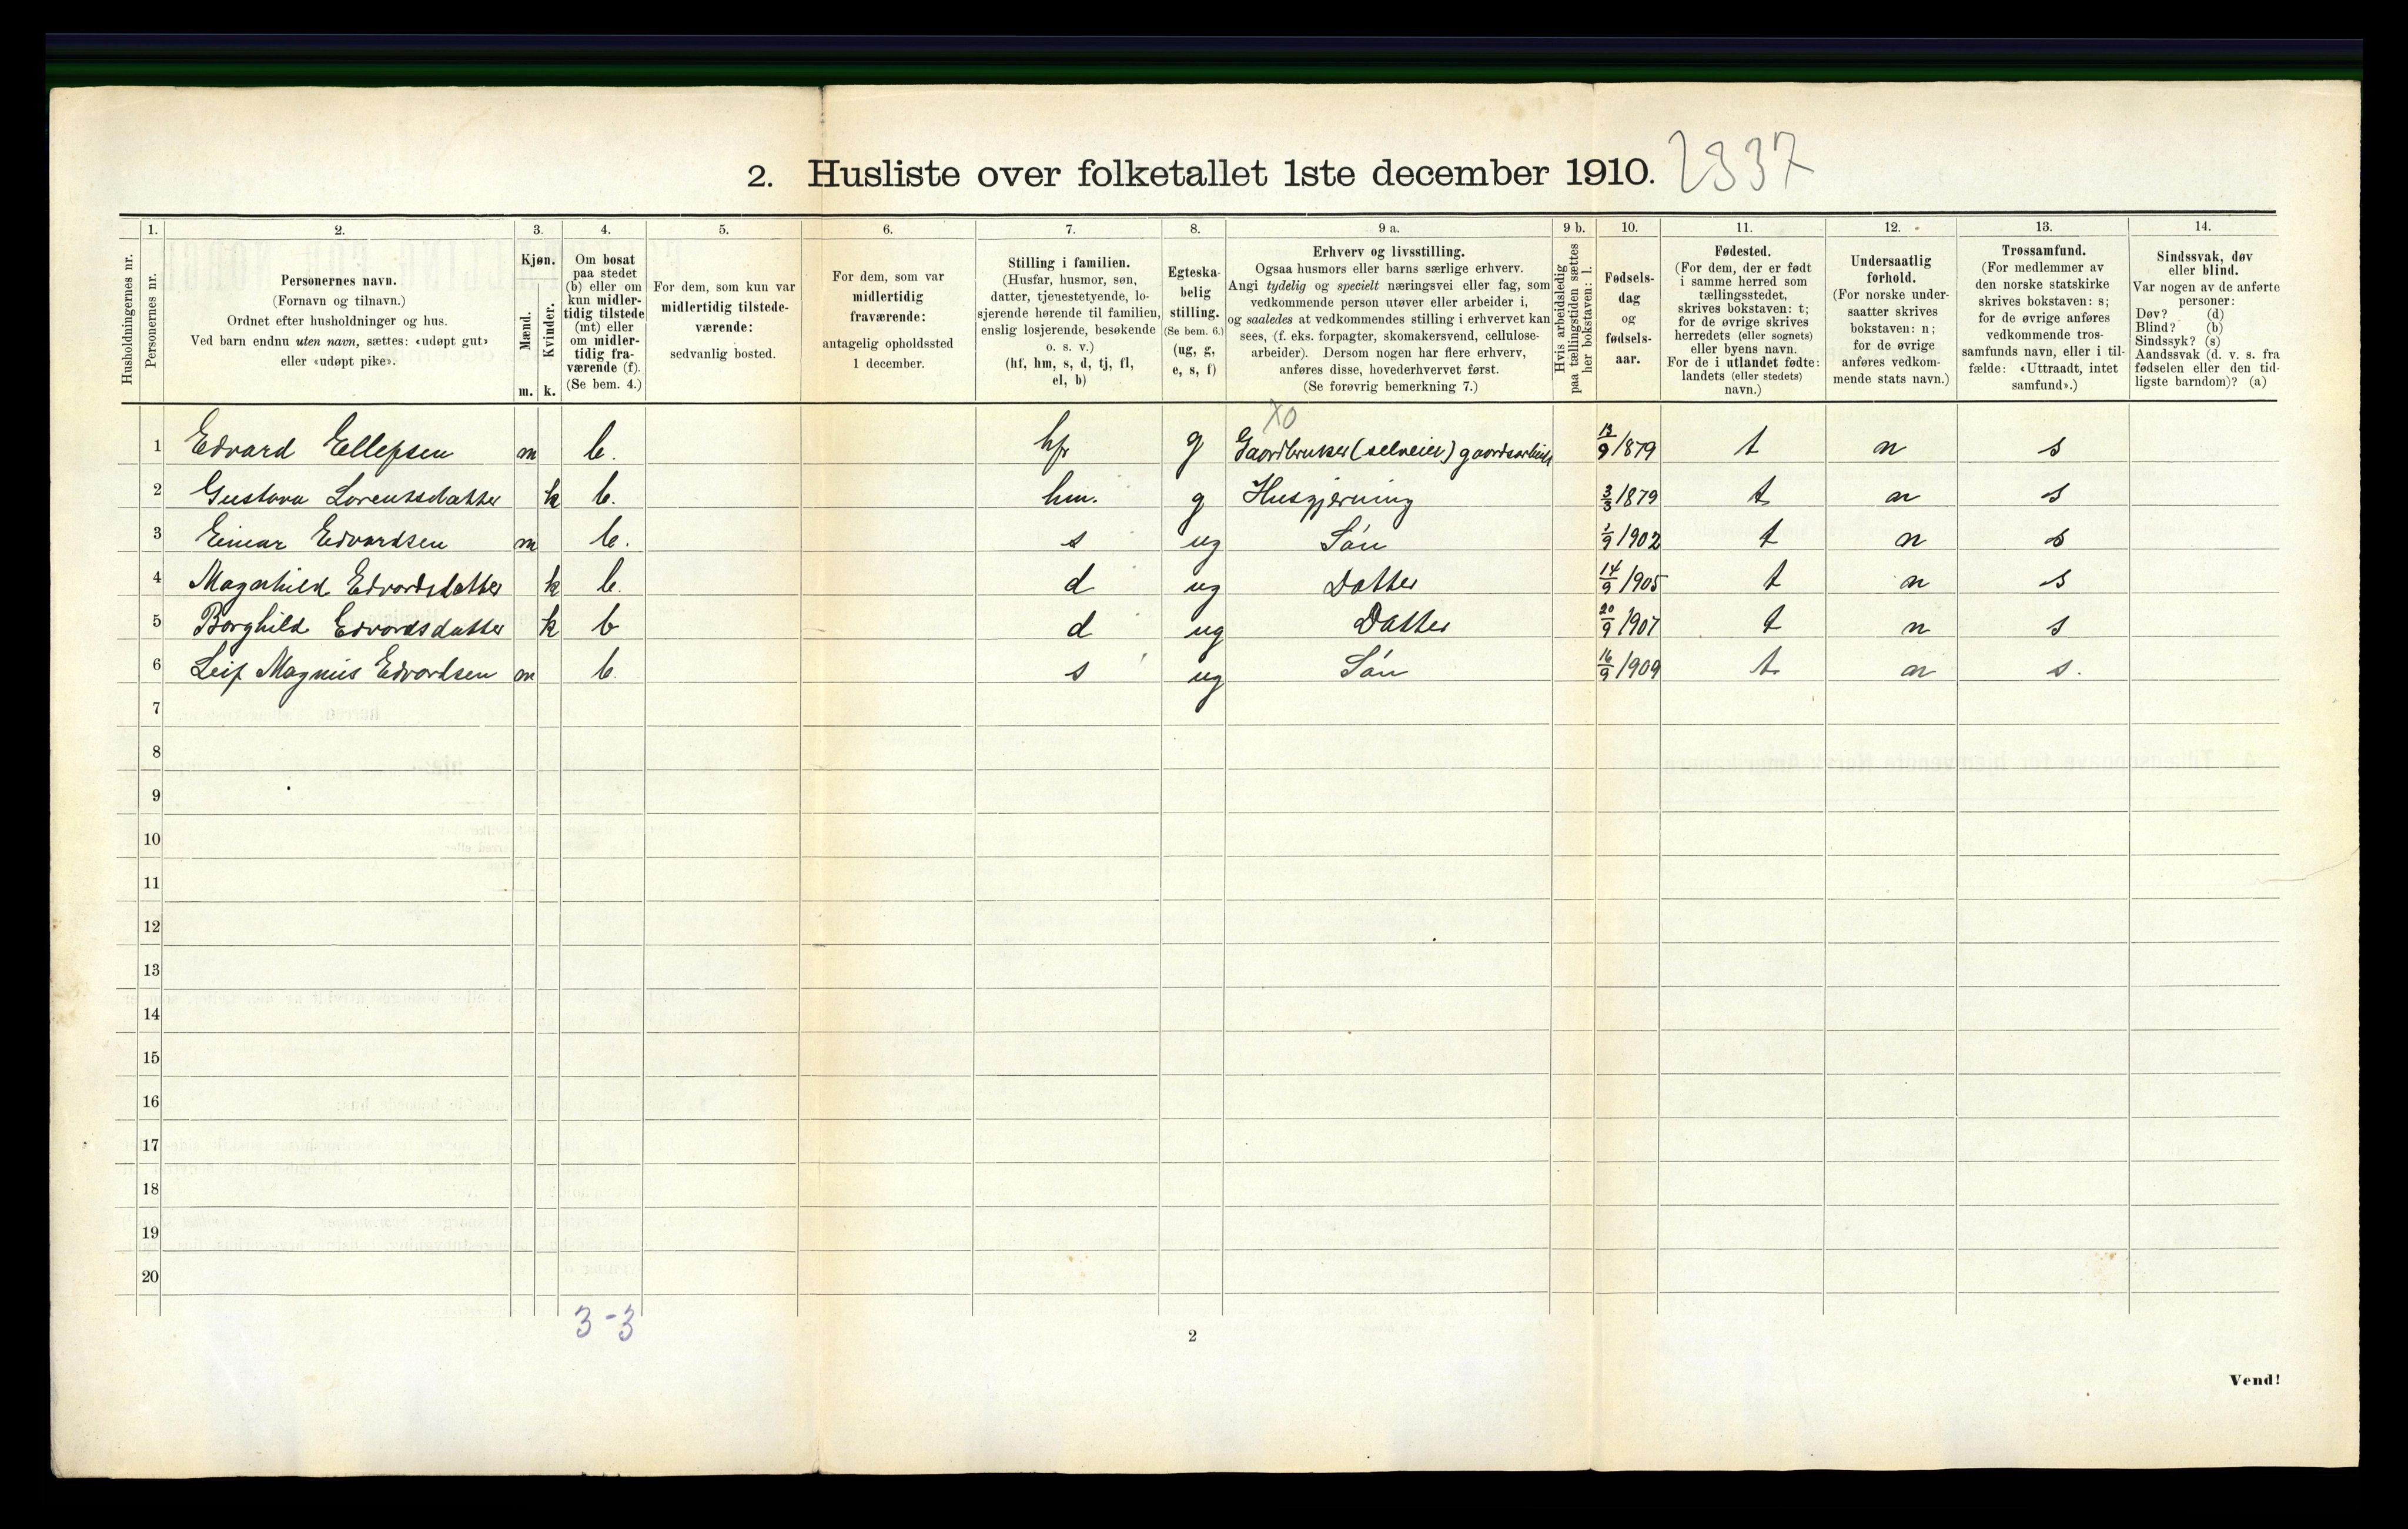 2. Husliste over folketallet 1ste december 1910. 2337
Husholdningernes nr.
1.
Personernes nr.
2.
Personernes navn.
(Fornavn og tilnavn.)
Ordnet efter husholdninger og hus.
Ved barn endnu uten navn, sættes: «udøpt gut»
eller «udøpt pike».
3.
Kjøn.
Mænd.
Kvinder.
m. k.
4.
Om bosat
paa stedet
(b) eller om
kun midler-
tidig tilstede
(mt) eller
om midler-
tidig fra-
værende (f).
(Se bem. 4.)
5.
For dem, som kun var
midlertidig tilstede-
værende:
sedvanlig bosted.
6.
For dem, som var
midlertidig
fraværende:
antagelig opholdssted
1 december.
7.
Stilling i familien.
(Husfar, husmor, søn,
datter, tjenestetyende, lo-
sjerende hørende til familien,
enslig losjerende, besøkende
o. s. v.)
(hf, hm, s, d, tj, fl,
el, b)
8.
Egteska-
belig
stilling.
(Se bem. 6.)
(ug, g,
e, s, f)
9 a.
Erhverv og livsstilling.
Ogsaa husmors eller barns særlige erhverv.
Angi tydelig og specielt næringsvei eller fag, som
vedkommende person utøver eller arbeider i,
og saaledes at vedkommendes stilling i erhvervet kan
sees, (f. eks. forpagter, skomakersvend, cellulose-
arbeider). Dersom nogen har flere erhverv,
anføres disse, hovederhvervet først.
(Se forøvrig bemerkning 7.)
9 b.
Hvis arbeidsledig
paa tællingstiden sættes
her bokstaven: l.
10.
Fødsels-
dag
og
fødsels-
aar.
11.
Fødested.
(For dem, der er født
i samme herred som
tællingsstedet,
skrives bokstaven: t;
for de øvrige skrives
herredets (eller sognets)
eller byens navn.
For de i utlandet fødte:
landets (eller stedets)
navn.)
12.
Undersaatlig
forhold.
(For norske under-
saatter skrives
bokstaven: n;
for de øvrige
anføres vedkom-
mende stats navn.)
13.
Trossamfund.
(For medlemmer av
den norske statskirke
skrives bokstaven: s;
for de øvrige anføres
vedkommende tros-
samfunds navn, eller i til-
fælde: «Uttraadt, intet
samfund».)
14.
Sindssvak, døv
eller blind.
Var nogen av de anførte
personer:
Døv? (d)
Blind? (b)
Sindssyk? (s)
Aandssvak (d. v. s. fra
fødselen eller den tid-
ligste barndom)? (a)
XO
1 Edvard Ellefsen m b. hf g Gaardbruker (selveier) gaardsarbeide 13/9 1879 t n s
2 Gustava Lorentsdatter k b. hm. g Husgjerning 3/3 1879 t n s
3 Einar Edvardsen m b. s ug Søn 1/9 1902 t n s
4 Magnhild Edvardsdatter k b. d ug Datter 14/9 1905 t n s
5 Borghild Edvardsdatter k b d ug Datter 20/9 1907 t n s
6 Leif Magnus Edvardsen m b. s ug Søn 16/9 1909 t n s.
7
8
9
10
11
12
13
14
15
16
17
18
19
20
3-3
2
Vend!